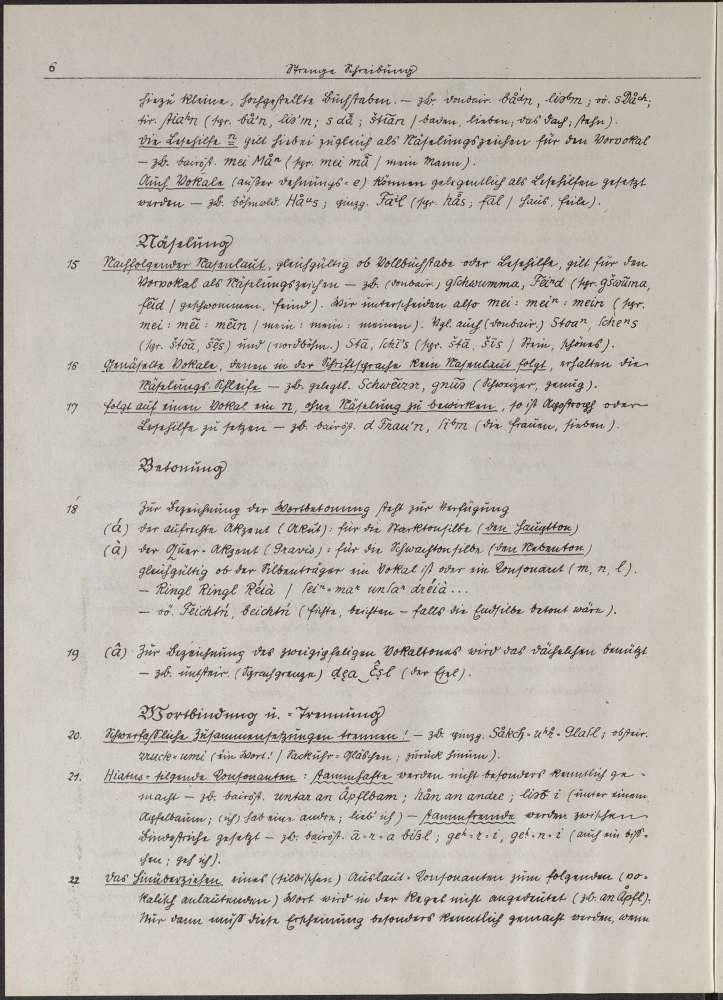 6 Strenge Schreibung
hiezu kleine, hochgestellte Buchstaben. — zb. donbair. bådn, liabm; oö. s Dåch;
tir. stian (spr. bå'n, lia'm; s då; štian / baden, lieben, das Dach, stehn).
Die Lesehilfe n gilt hiebei zugleich als Näselungszeichen für den Vorvokal
— zb. bairöst. mei Mån (spr. mei må / mein Mann).
Auch Vokale (außer Dehnungs-e) können gelegentlich als Lesehilfen gesetzt
werden — zb. böhmwald. Håus; Fail (spr. hås; fäl / Haus, Feile).
Näselung
15 Nachfolgender Nasenlaut, gleichgültig ob Vollbuchstabe oder Lesehilfe, gilt für den
Vorvokal als Näselungszeichen — zb. (donbair.) gschwumma, Feind (spr. gšwuma,
feid / geschwommen, Feind). Wir unterscheiden also mei : mein : mein (spr.
mei : mẽi : mẽin / mein : mein : meinen). Vgl. auch (donbair.) Stoan, schens
(spr. štoã, šẽs) und (nordböhm.) Stã, schis (spr. štã, šĩs / Stein, schönes).
16 Genäselte Vokale, denen in der Schriftsprache kein Nasenlaut folgt, erhalten die
Näselungs-Schleife — zb. gelegtl. Schwẽizer, gnũs (Schweizer, genug).
17 folgt auf einen Vokal ein n, ohne Näselung zu bewirken, so ist Apostroph oder
Lesehilfe zu setzen — zb. bairöst. d Frau'n, sibm (die Frauen, sieben).
Betonung
18 Zur Bezeichnung der Wortbetonung steht zur Verfügung
(á) der aufrechte Akzent (Akut): für die Starktonsilbe (den Hauptton)
(à) der Quer-Akzent (Gravis): für die Schwachtonsilbe (den Nebenton)
gleichgültig ob der Silbenträger ein Vokal ist oder ein Konsonant (m, n, l).
— Ringl Ringl Réià / sein-mar unsar dréià ...
— oö. Feichtń, beichtń (Fichte, beichten – falls die Endsilbe betont wäre).
19 (â) Zur Bezeichnung des zweigipfeligen Vokaltones wird das Dächelchen benützt
— zb. untsteir. (Sprachgrenze) dea Êsl (der Esel).
Wortbindung u. -Trennung
20. Schwerfaßliche Zusammensetzungen trennen! — zb. Såkch-uhr-Glasl; obsteir.
zruck-umi (ein Wort! / Sackuhr-Gläschen; zurück hinum).
21. Hiatus-tilgende Konsonanten: stammhafte werden nicht besonders kenntlich ge-
macht — zb. bairöst. untar an Åpflbam; hån an andre; liab i (unter einem
Apfelbaum; (ich) hab eine andre; lieb ich) – stammfremde werden zwischen
Bindestriche gesetzt — zb. bairöst. ã-r-a bißl; geh-r-i, geh-n-i (auch ein biß-
chen; geh ich).
22 Das Hinüberziehen eines (silbischen) Auslaut-Konsonanten zum folgenden (vo-
kalisch anlautenden) Wort wird in der Regel nicht angedeutet (zb. an Åpfl).
Nur dann muß diese Erscheinung besonders kenntlich gemacht werden, wenn